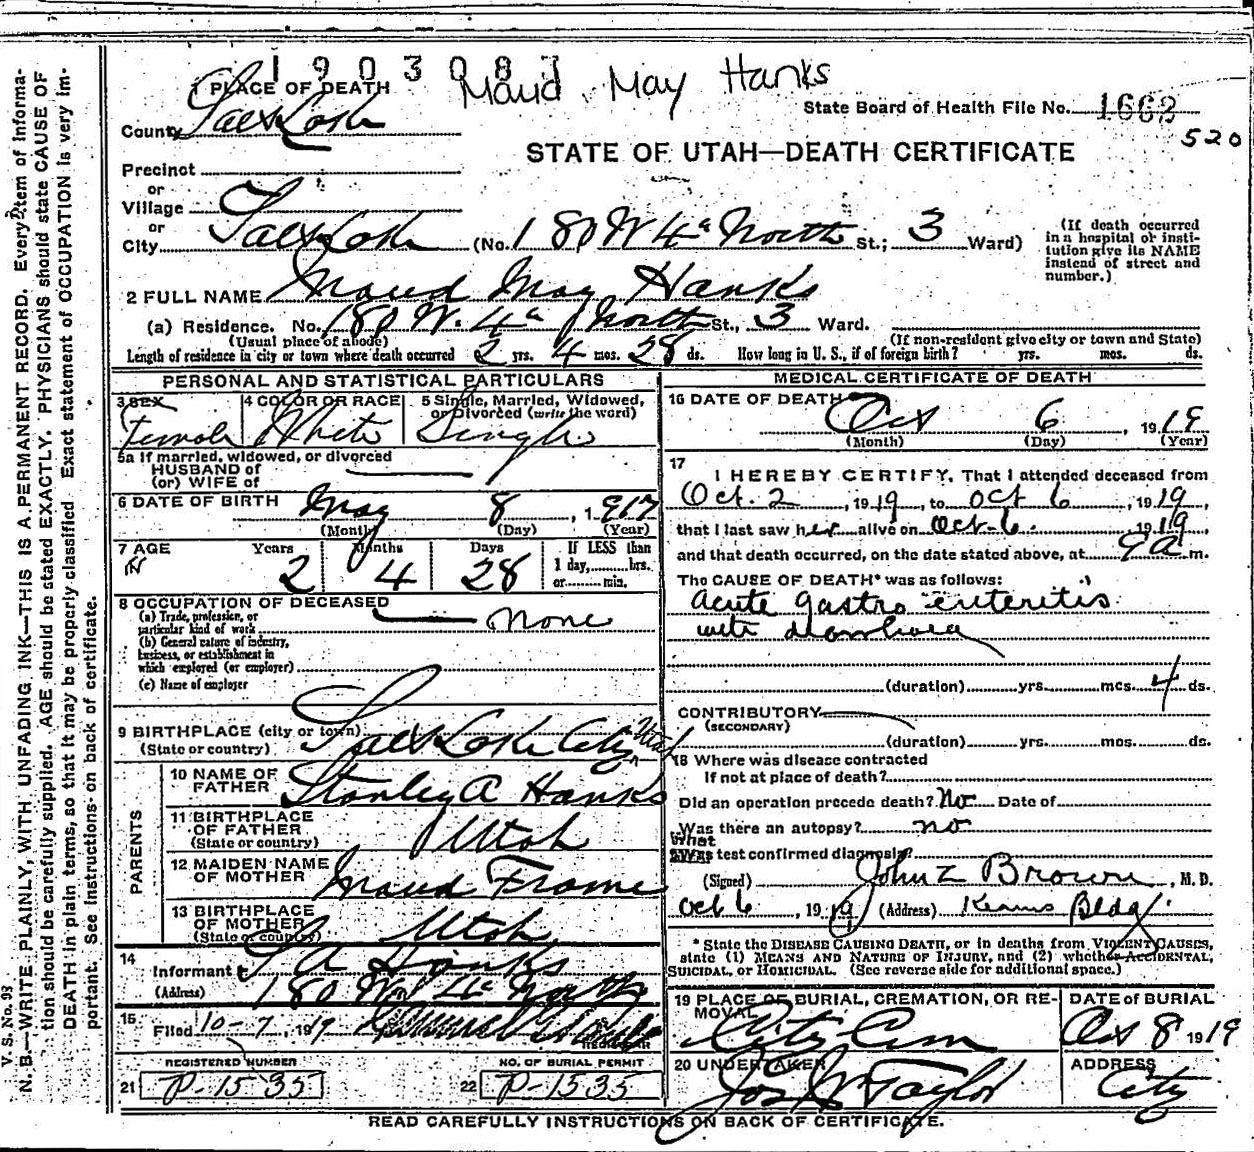 1903087
Maud May Hanks
1 PLACE OF DEATH
State Board of Health File No. 1662
520
County Salt Lake
STATE OF UTAH—DEATH CERTIFICATE
Precinct
or
Village
or
City Salt Lake (No. 180 W 4th North St.; 3 Ward)
(If death occurred in a hospital or institution give its NAME instead of street and number.)
2 FULL NAME Maud May Hanks
(a) Residence. No. 180 W. 4th North St., 3 Ward.
(Usual place of abode) (If non-resident give city or town and State)
Length of residence in city or town where death occurred 2 yrs. 4 mos. 28 ds. How long in U. S., if of foreign birth? yrs. mos. ds.
PERSONAL AND STATISTICAL PARTICULARS
3 SEX Female
4 COLOR OR RACE White
5 Single, Married, Widowed, or Divorced (write the word) Single
5a If married, widowed, or divorced
HUSBAND of
(or) WIFE of
6 DATE OF BIRTH May 8, 1917
(Month) (Day) (Year)
7 AGE Years 2 Months 4 Days 28 If LESS than 1 day, hrs. or min.
8 OCCUPATION OF DECEASED
(a) Trade, profession, or particular kind of work None
(b) General nature of industry, business, or establishment in which employed (or employer)
(c) Name of employer
9 BIRTHPLACE (city or town) Salt Lake City Utah
(State or country)
PARENTS
10 NAME OF FATHER Stanley A Hanks
11 BIRTHPLACE OF FATHER Utah
(State or country)
12 MAIDEN NAME OF MOTHER Maud Frame
13 BIRTHPLACE OF MOTHER Utah
(State or country)
14 Informant S A Hanks
(Address) 180 W 4th North
15 Filed 10-7, 1919
REGISTERED NUMBER
21 P-1535
NO. OF BURIAL PERMIT
22 P-1535
MEDICAL CERTIFICATE OF DEATH
16 DATE OF DEATH Oct 6 1919
(Month) (Day) (Year)
17
I HEREBY CERTIFY, That I attended deceased from
Oct. 2, 1919, to Oct 6, 1919,
that I last saw her alive on Oct-6, 1919,
and that death occurred, on the date stated above, at 9 a m.
The CAUSE OF DEATH* was as follows:
acute gastro enteritis
with diarrhoea
(duration) yrs. mos. 4 ds.
CONTRIBUTORY
(SECONDARY)
(duration) yrs. mos. ds.
18 Where was disease contracted
If not at place of death?
Did an operation precede death? No Date of
Was there an autopsy? no
What test confirmed diagnosis?
(Signed) John Z Brown, M. D.
Oct 6, 1919 (Address) Kearns Bldg.
* State the DISEASE CAUSING DEATH, or in deaths from VIOLENT CAUSES,
state (1) MEANS AND NATURE OF INJURY, and (2) whether ACCIDENTAL,
SUICIDAL, or HOMICIDAL. (See reverse side for additional space.)
19 PLACE OF BURIAL, CREMATION, OR REMOVAL City Cem
DATE of BURIAL Oct 8 1919
20 UNDERTAKER Jos Wm Taylor
ADDRESS City
READ CAREFULLY INSTRUCTIONS ON BACK OF CERTIFICATE.
V. S. No. 93
N. B.—WRITE PLAINLY, WITH UNFADING INK—THIS IS A PERMANENT RECORD. Every item of informa-
tion should be carefully supplied. AGE should be stated EXACTLY. PHYSICIANS should state CAUSE OF
DEATH in plain terms, so that it may be properly classified. Exact statement of OCCUPATION is very im-
portant. See instructions on back of certificate.